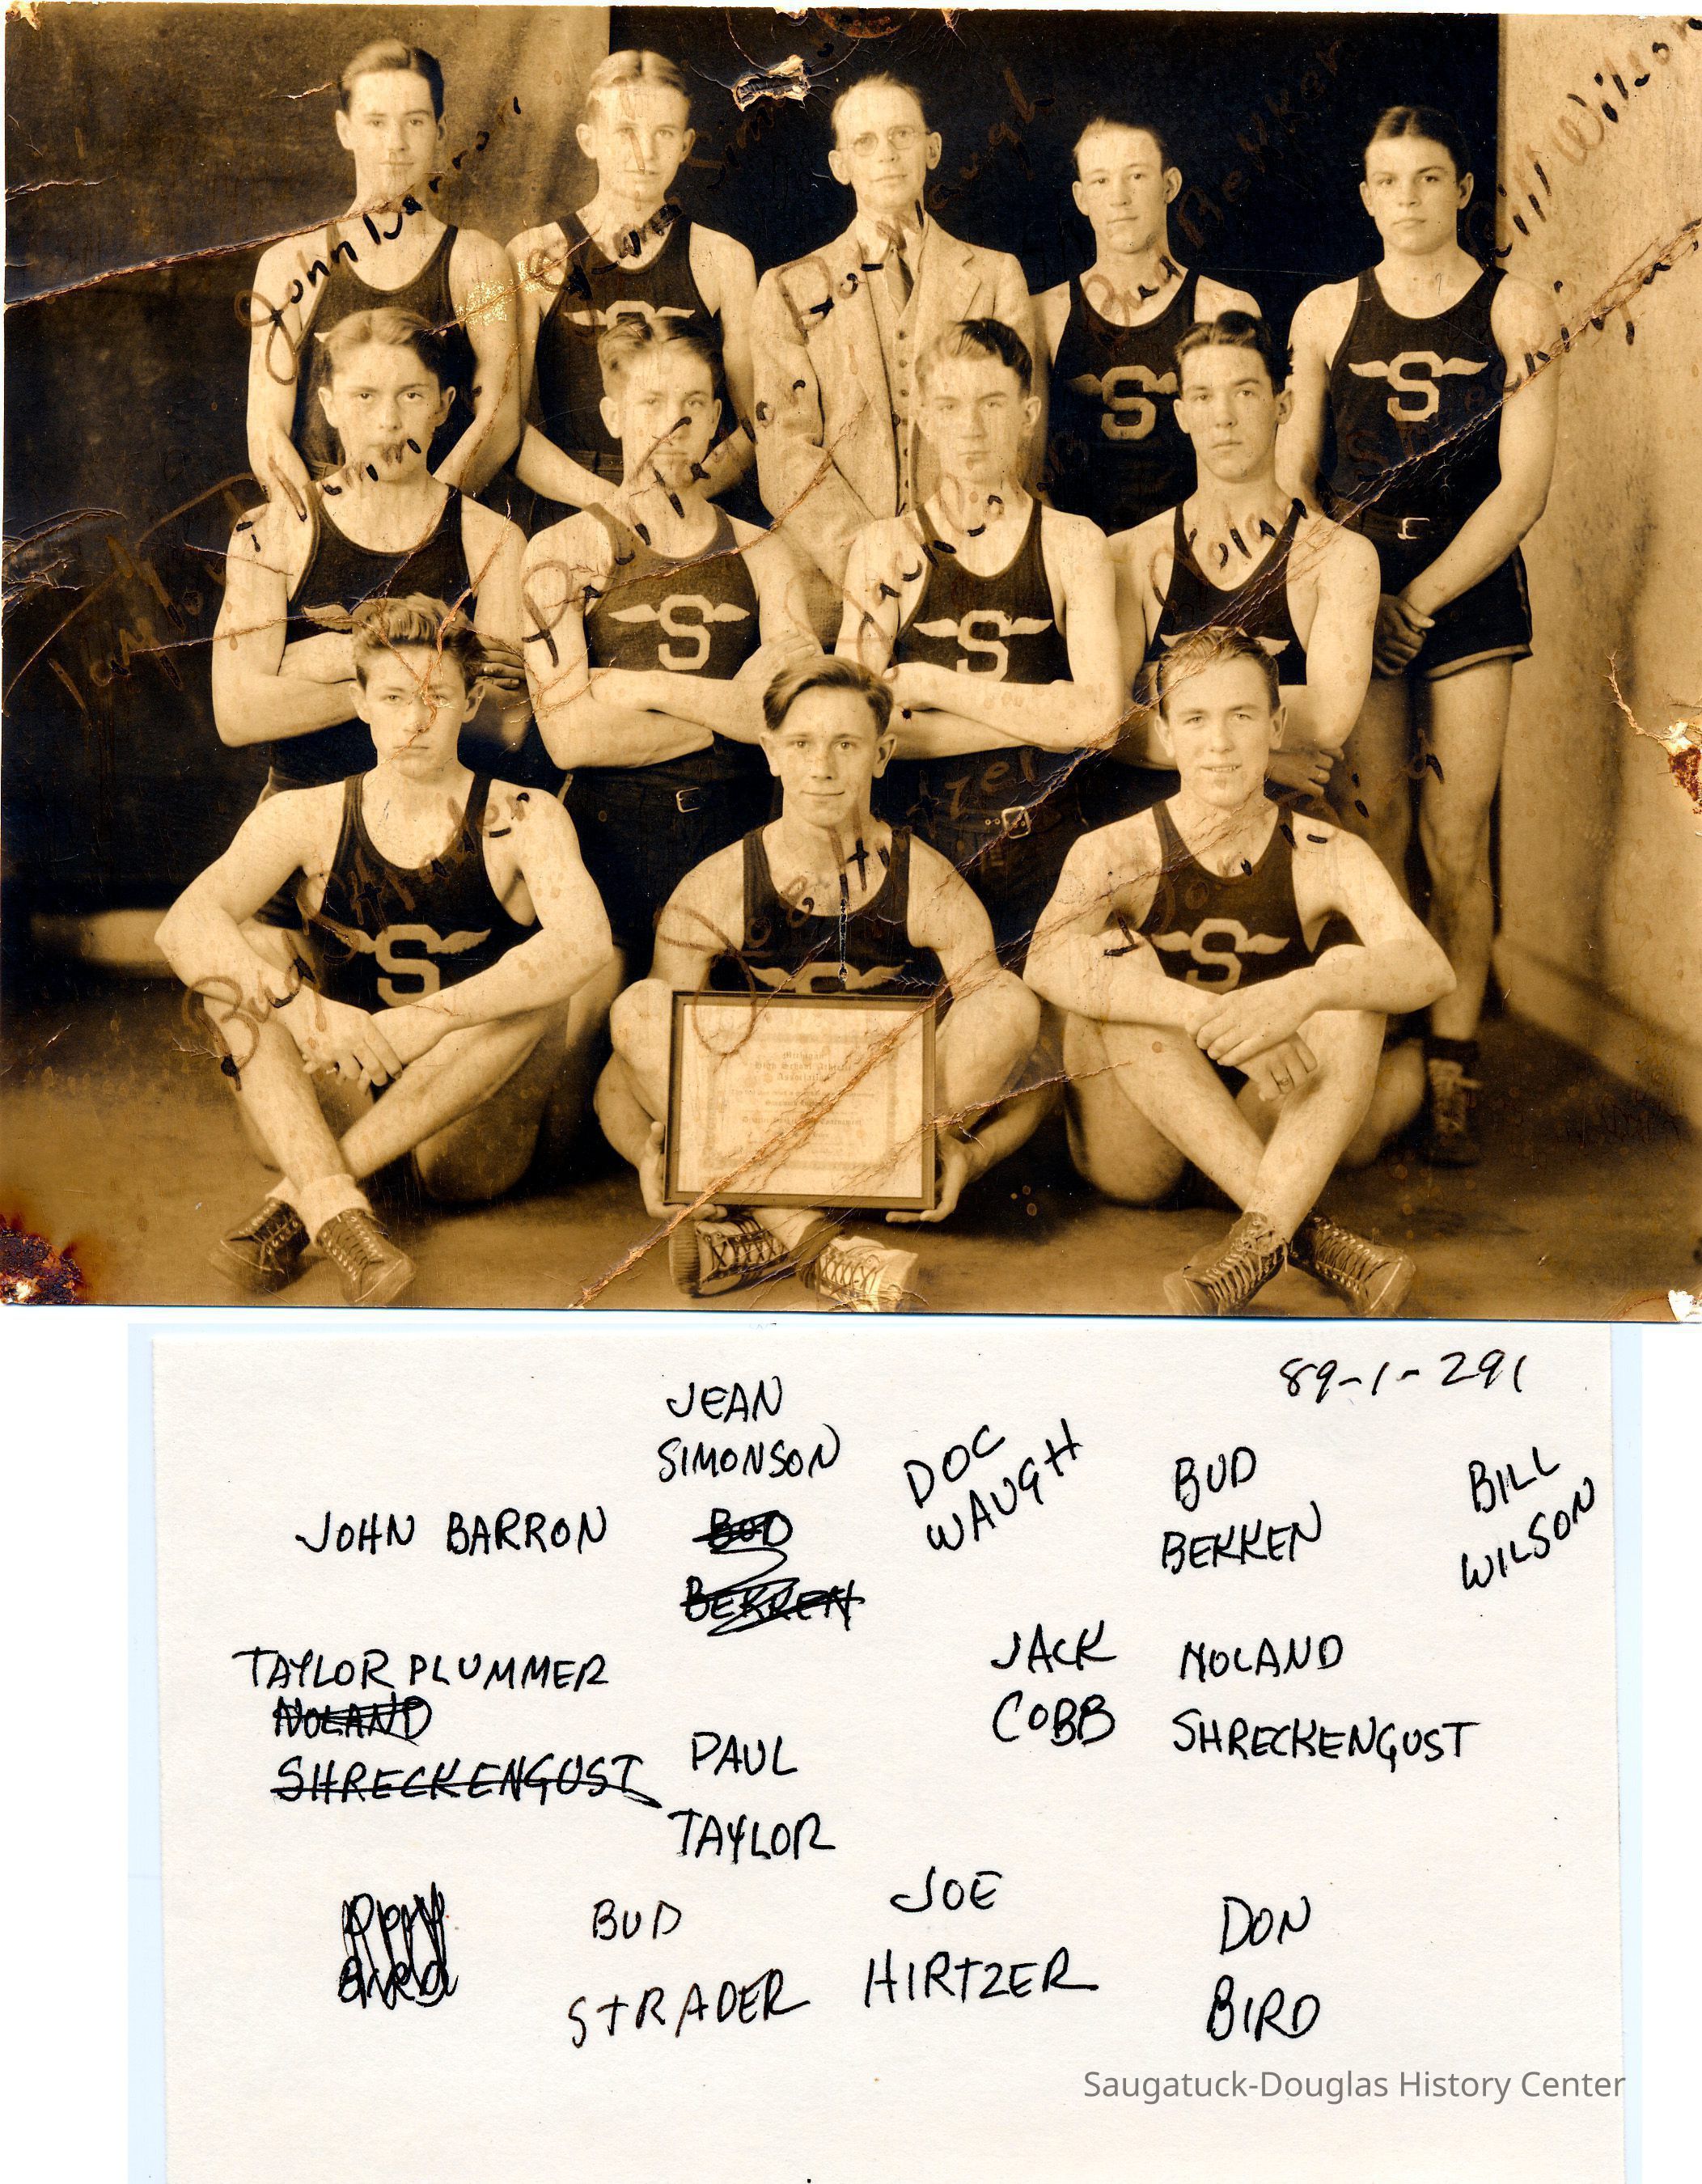 John Barron
Doc Waugh
Bud Bekken
Bill Wilson
S
S
Paul Taylor
Jack Cobb
Noland
S
S
Bud Strader
Joe Hirtzel
Don Bird
S
S
S
Michigan
High School Athletic
Association
89-1-291
JEAN
SIMONSON
DOC
WAUGH
BUD
BEKKEN
BILL
WILSON
JOHN BARRON
BUD
BEKKEN
TAYLOR PLUMMER
NOLAND
SHRECKENGUST
PAUL
TAYLOR
JACK
COBB
NOLAND
SHRECKENGUST
BUD
STRADER
JOE
HIRTZER
DON
BIRD
Saugatuck-Douglas History Center